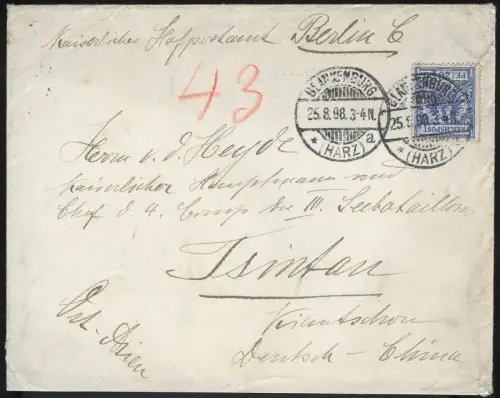 Kaiserliches Hofpostamt Berlin C
43
BLANKENBURG
25.8.98. 3-4N.
* (HARZ) a
BLANKENBURG
25.8.98. 3-4N.
* (HARZ)
REICHSPOST
PF. 20
Herrn v. d. Heyde
Kaiserlicher Hauptmann und
Chef d. 4. Comp. des III. Seebataillons
Tsintau
Kiautschou
Deutsch-China
Ost-Asien